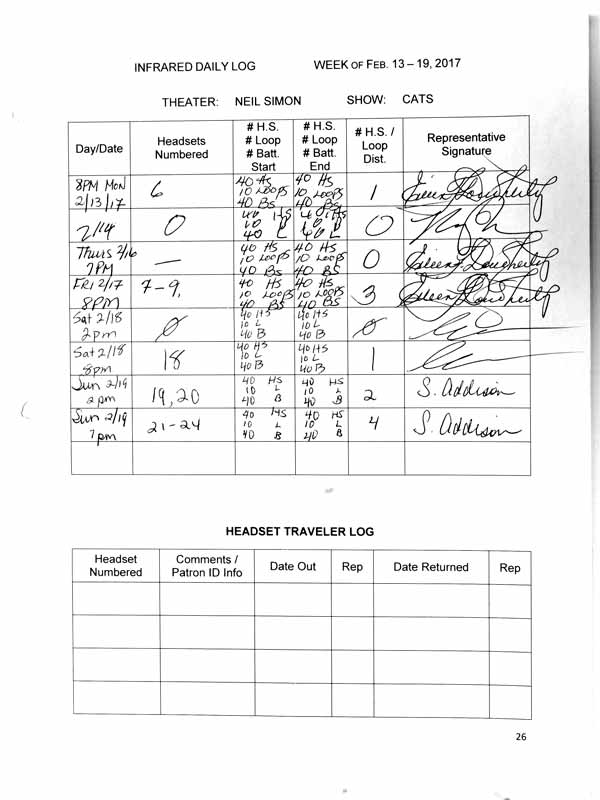 INFRARED DAILY LOG WEEK OF FEB. 13 – 19, 2017
THEATER: NEIL SIMON SHOW: CATS
Day/Date Headsets Numbered # H.S. # Loop # Batt. Start # H.S. # Loop # Batt. End # H.S. / Loop Dist. Representative Signature
8PM MON 2/13/17 6 40 HS 10 LOOPS 40 BS 40 HS 10 LOOPS 40 BS 1 Eileen Dougherty
2/14 0 40 HS 10 L 40 HS 10 L 0
Thurs 2/16 7PM — 40 HS 10 LOOPS 40 BS 40 HS 10 LOOPS 40 BS 0 Eileen Dougherty
FRI 2/17 8PM 7-9, 40 HS 10 LOOPS 40 BS 40 HS 10 LOOPS 40 BS 3 Eileen Dougherty
Sat 2/18 2pm 0 40 HS 10 L 40 B 40 HS 10 L 40 B 0
Sat 2/18 8pm 18 40 HS 10 L 40 B 40 HS 10 L 40 B 1
Sun 2/19 2pm 19,20 40 HS 10 L 40 B 40 HS 10 L 40 B 2 S. Addison
Sun 2/19 7pm 21-24 40 HS 10 L 40 B 40 HS 10 L 40 B 4 S. Addison
HEADSET TRAVELER LOG
Headset Numbered Comments / Patron ID Info Date Out Rep Date Returned Rep
26